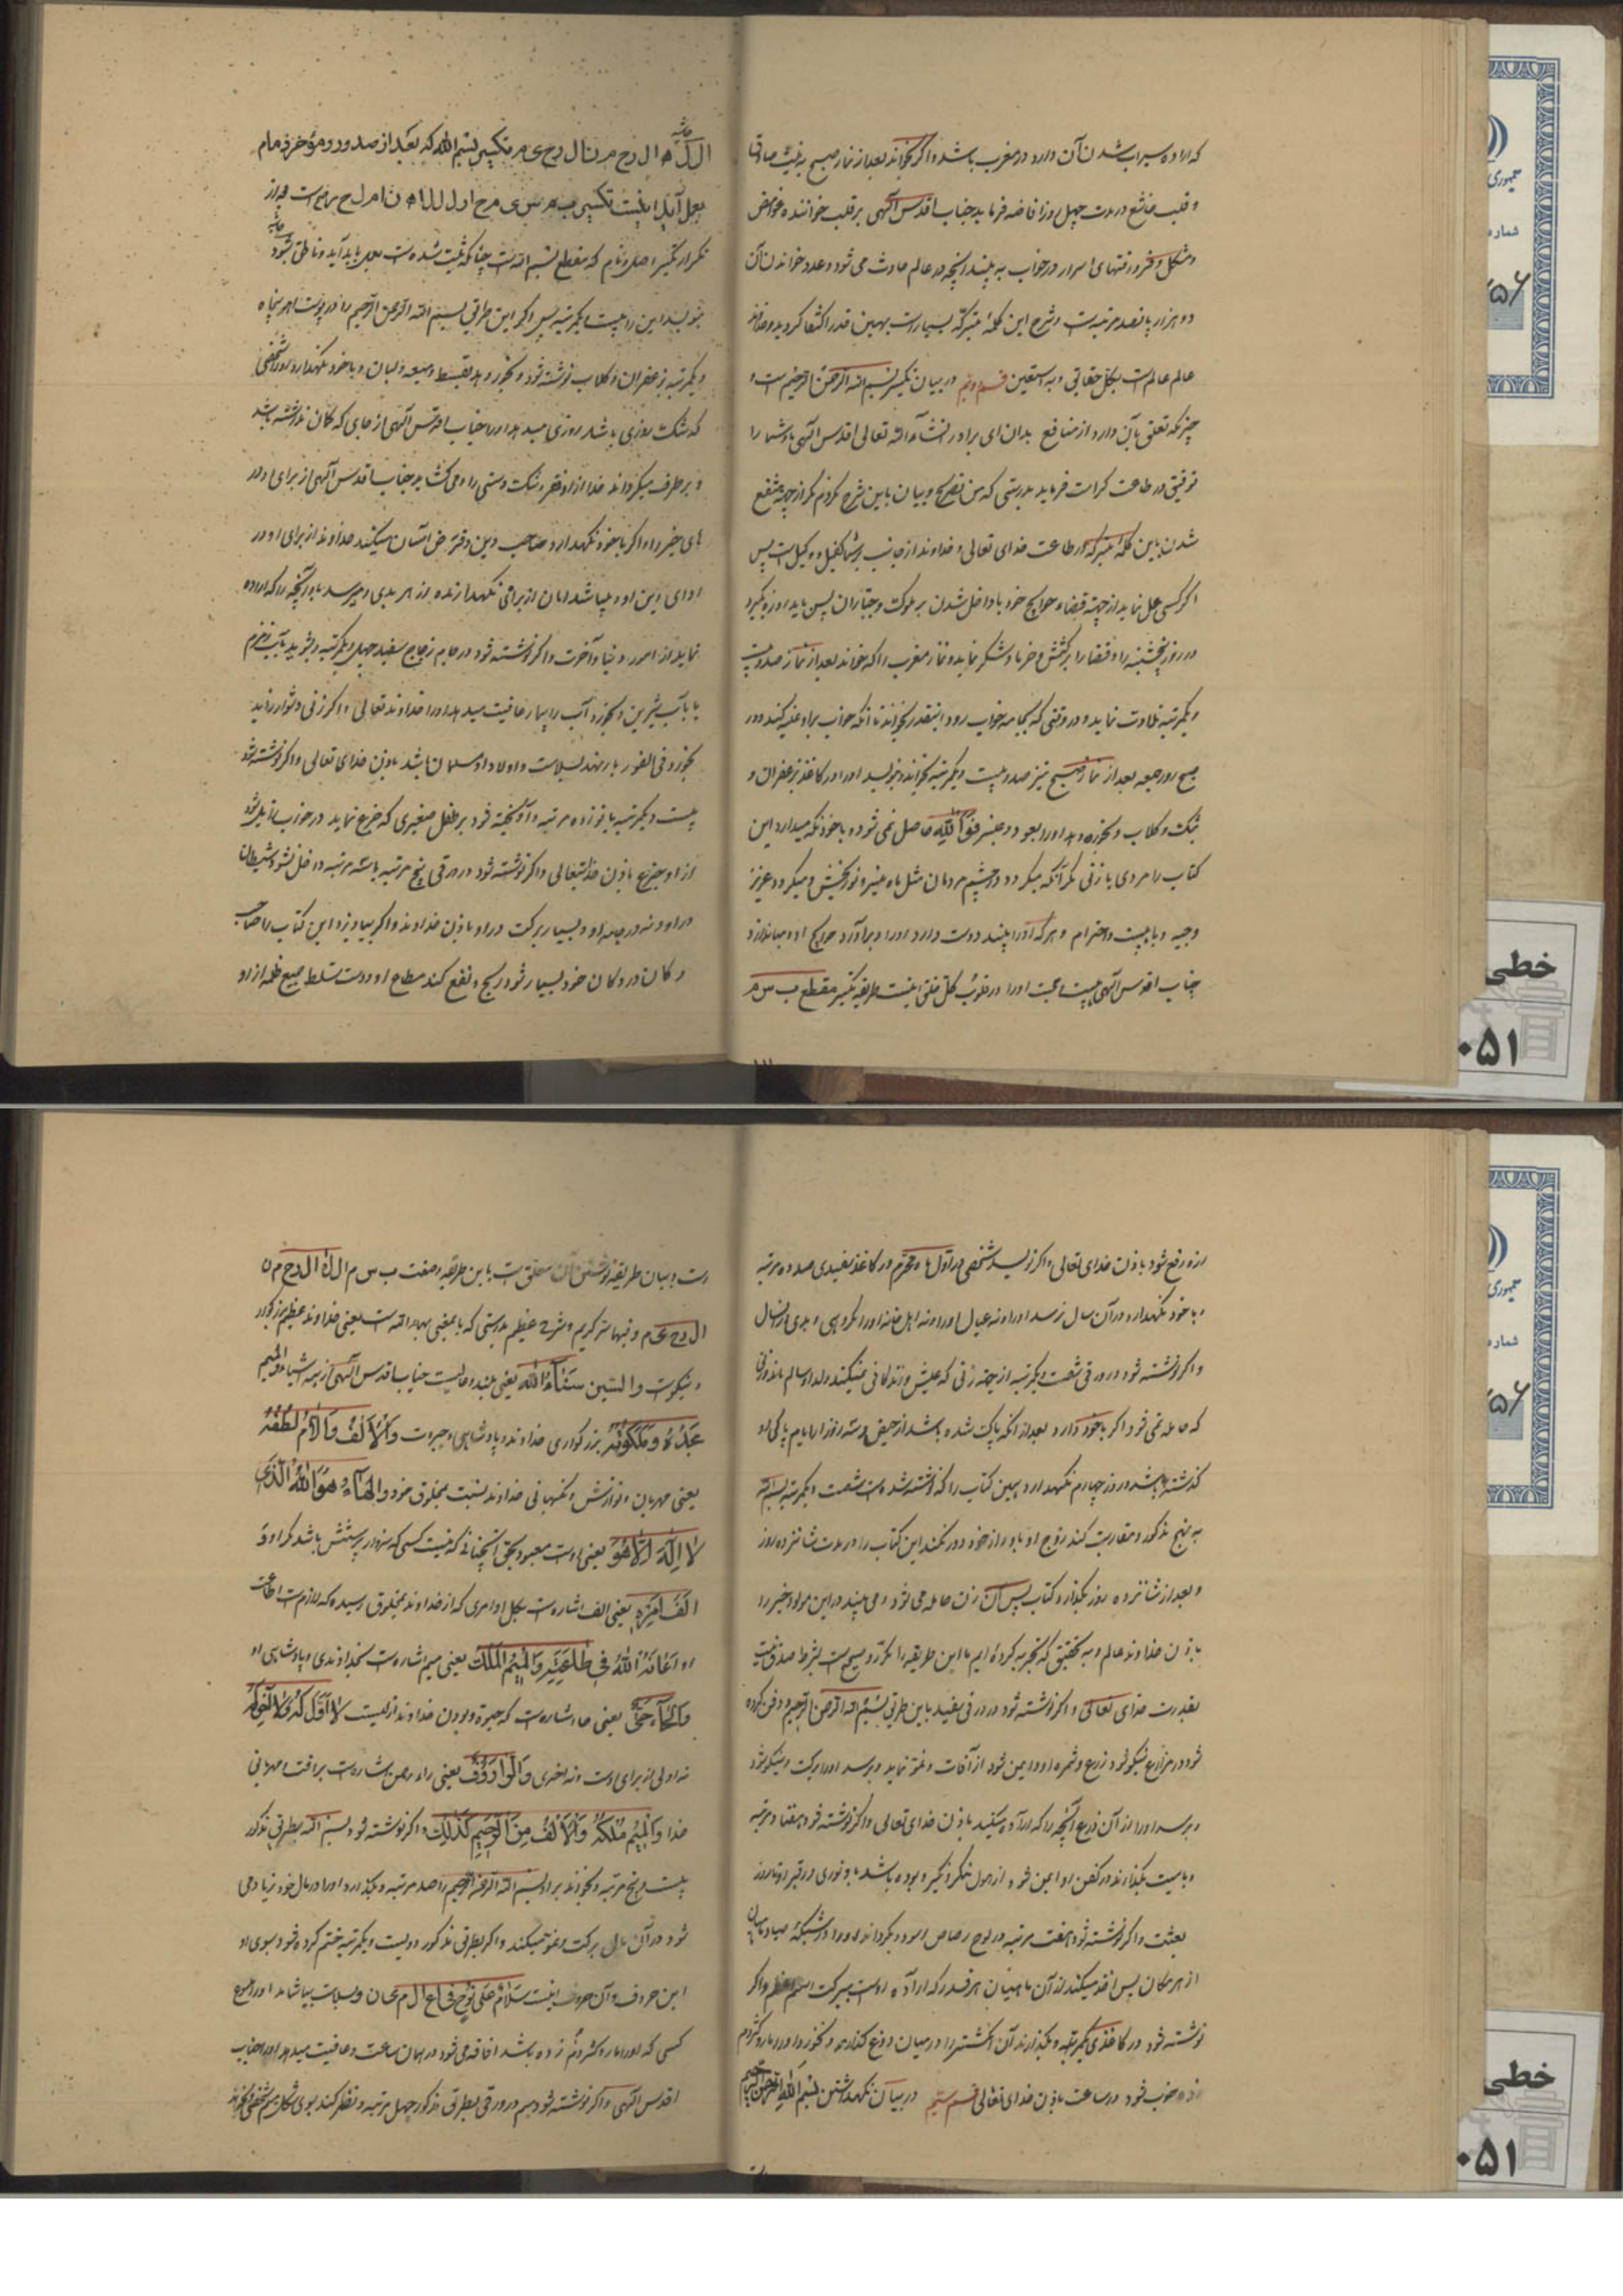 که اراده سیراب شدن آن دارد در مغرب باشد و اگر بخواند بعد از نماز صبح به نیت صادق
و قلب خاشع در مدت چهل روز افاضه فرماید جناب اقدس آلهی بر قلب خواننده غوامض
و مشکل و در خواب به بیند آنچه در عالم حادث می شود و عدد خواندن آن
دو هزار پانصد مرتبه است و شرح این کلمهٔ متبرکه بسیار است بهمین قدر اکتفا کردیم و خداوند
عالم عالم است بکل حقایق و به استعین قسم دویم در بیان تکسیر بسم الله الرحمن الرحیم است و
چیزیکه تعلق بآن دارد از منافع بدان ای برادر انشاء الله تعالی اقدس آلهی ما و شما را
توفیق در طاعت کرامت فرماید بدرستی که من تصریح و بیان باین شرح نکردم مگر از جهة منتفع
شدن باین کلمهٔ متبرکه در طاعت خدای تعالی و خداوند از جانب بر شما کفیل و وکیل است پس
اگر کسی عمل نماید از جهة قضاء حوایج خود یا داخل شدن بر ملوک و جباران پس باید روزه بگیرد
در روز پنجشنبه را و افطار را بر کشمش و خرما و شکر نماید و نماز مغرب را که خواند بعد از نماز صد و بیست
و یکمرتبه تلاوت نماید و در وقتی که بجامه خواب رود اینقدر بخواند تا آنکه خواب بر او غلبه کند و در
صبح روز جمعه بعد از نماز صبح نیز صد و بیست و یکمرتبه بخواند و بنویسد او را در کاغذ بزعفران و
مشک و گلاب و بخور دهد او را بعود و عنبر فو الله حاصل نمی شود و با خود نگه میدارد این
کتاب را مردی یا زنی مگر آنکه میگردد در چشم مردمان مثل ماه منیر و نور بخش و میگردد عزیز
وجیه و با هیبت و احترام و هر که او را بیند دوست دارد او را و برآورد حوایج او و میاندازد
جناب اقدس آلهی هیبت و محبت او را در قلوب کل خلق اینست طریقه تکسیر مقطع ب س م
ال ل ه ال رح م ن ال رح ی م تکسیر بسم الله که بعد از صدور و مؤخر زمام
تکرار تکسیر اصل و زمام که مقطع بسم الله است چنانکه ثبت شده است بعمل باید آید و ناطق شود
بنویسد این را بیست و یکمرتبه پس اگر این طریق بسم الله الرحمن الرحیم را در پوست آهو پنجاه
و یکمرتبه بزعفران و گلاب نوشته شود و بخور دهد بقسط و میعه و لبان و با خود نگهدارد او را شخصی
که تنگ روزی باشد روزی میدهد او را جناب اقدس آلهی از جای که گمان نداشته باشد
و بر طرف میگرداند خدا از او فقر و تنگ دستی را و می گشاید جناب اقدس آلهی از برای او در
های خیر را و اگر با خود نگهدارد صاحب دین و قرض آسان میکند خداوند از برای او در
ادای دین او و میباشد امان از برای نگهدارنده از هر بدی و میرسد باو آنچه را که اراده
نماید از امور دنیا و آخرت و اگر نوشته شود در جام زجاج سفید چهل و یکمرتبه و بشوید بآب زمزم
یا بآب شیرین و بخورد آب را بیمار عافیت میدهد او را خداوند تعالی و اگر زنی دشوار زاید
بخورد فی الفور بار نهد بسلامت و اولاد او مسلمان باشد باذن خدای تعالی و اگر نوشته شود
بیست و یکمرتبه یا نوزده مرتبه و آویخته شود بر طفل صغیری که فزع نماید در خواب زایل شود
از او فزع باذن خدایتعالی و اگر نوشته شود در ورقی پنج مرتبه یا سه مرتبه داخل نشود شیطان
در او و نه در جامه او و بسیار برکت در او باذن خداوند و اگر بیاویزد این کتاب را صاحب
دکان در دکان خود بسیار شود ربح و نفع کند متاع او و دست تسلط جمیع ظلمه از او
ازو رفع شود باذن خدای تعالی و اگر نویسد شخصی در اول ماه محرم در کاغذ سفیدی صد و ده مرتبه
و با خود نگهدارد در آن سال نرسد او را و نه عیال او را و نه اهل خانه او را مکروهی و بدی از آنسال
و اگر نوشته شود در ورقی شصت و یکمرتبه از جهة زنی که عیش و زندگانی نمیکند ولد او سالم ماند و زنی
که حامله نمی شود اگر با خود دارد بعد از آنکه پاک شده باشد از حیض و سه روز از ایام پاکی او
گذشته باشد در روز چهارم نگهدارد همین کتاب را که نوشته شده است شصت و یکمرتبه بسم الله
به نهج مذکور و مقاربت کند زوج او باو و از خود دور نکند این کتاب را در مدت شانزده روز
و بعد از شانزده روز بگذارد کتاب پس آن زن حامله می شود و می بیند در این مولود خیر را
باذن خداوند عالم و به تحقیق که تجربه کرده ایم ما این طریقه را مکرر و صحیح است بشرط صدق نیت
بقدرت خدای تعالی و اگر نوشته شود در ورقی سفید باین طریق بسم الله الرحمن الرحیم و دفن کرده
شود در مزارع نیکو شود زرع و ثمره او و ایمن شود از آفات و نمو نماید و برسد او را برکت و نیکو شود
و برسد او را از آن زرع آنچه را که اراده میکند باذن خدای تعالی و اگر نوشته شود هفتاد مرتبه
و با میت بگذارند در کفن او ایمن شود از هول منکر و نکیر و بوده باشد با و نوری در قبر او تا روز
بعثت و اگر نوشته شود هفت مرتبه در لوح رصاص اسود و بگرداند او را در شبکهٔ صیاد ماهیان
از هر مکان پس اخذ میکند از آن ماهیان هر قدر که اراده اوست ببرکت اسم اعظم و اگر
نوشته شود در کاغذی یکمرتبه و بگذارند آن نوشته را در میان دوغ گذارند و بخورد او را مار و کژدم
زده خوب شود در ساعت باذن خدای تعالی قسم سیم در بیان نگهداشتن بسم الله الرحمن الرحیم
است و بیان طریقه نوشتن آن متعلق است باین طریقه و صفت ب س م ال ل ه ال رح م ن
ال رح ی م و فیها سر کریم و شرح عظیم بدرستی که با بمعنی بهاء الله است یعنی خداوند عظیم بزرگوار
و نیکوست والسین سَنَاءُ الله یعنی بلند و عالیست جناب اقدس آلهی از همه اشیاء والمیم
مَجْدُهُ وَ مَلَکُوتُهُ بزرگواری خداوند و پادشاهی و جبروت وَالاَلِفُ وَاللّامُ لُطْفُهُ
یعنی مهربان و نوازش و نگهبانی خداوند نسبت بمخلوق خود والهَاءُ هُوَ اللهُ الَّذِی
لا اِلٰهَ اِلّا هُوَ یعنی اوست معبود بحق آنچنانی که نیست کسی که سزاوار پرستش باشد مگر او وَ
یعنی الف اشاره است بکل اوامری که از خداوند بمخلوق رسیده که لازم است اطاعت
وَالمِیمُ المُلْکُ یعنی میم اشاره است بخداوندی و پادشاهی او
وَالحَاءُ حَیٌّ یعنی حاء اشاره است که حیوة و بودن خداوند از لیست لا اَوَّلَ لَهُ وَلا آخِرَ لَهُ
نه اولی از برای اوست و نه آخری یعنی راء رحمن اشاره است برافت و مهربانی
خدا وَالمِیمُ مُلْکُهُ وَالاَلِفُ مِنَ الرَّحِیمِ کَذٰلِکَ و اگر نوشته شود بسم الله بطریق مذکور
بیست و پنج مرتبه و بخوانند بر او بسم الله الرحمن الرحیم را صد مرتبه و بگذارد او را در مال خود زیاد می
شود در آن مال برکت و نمو میکند و اگر بطریق مذکور دویست و یکمرتبه ختم کرده شود بسوی او
این حروف و آن حروف اینست سَلامٌ عَلیٰ نُوحٍ فِی ال ع ال م ین
کسی که او را مار و کژدم زده باشد افاقه می شود در همان ساعت و عافیت میدهد او را جناب
اقدس آلهی و اگر نوشته شود میم در ورقی بطریق مذکور چهل مرتبه و نظر کند بسوی شکل میم شخصی
جمهوری
شماره
خطی
۰۵۱
جمهوری
شماره
خطی
۰۵۱